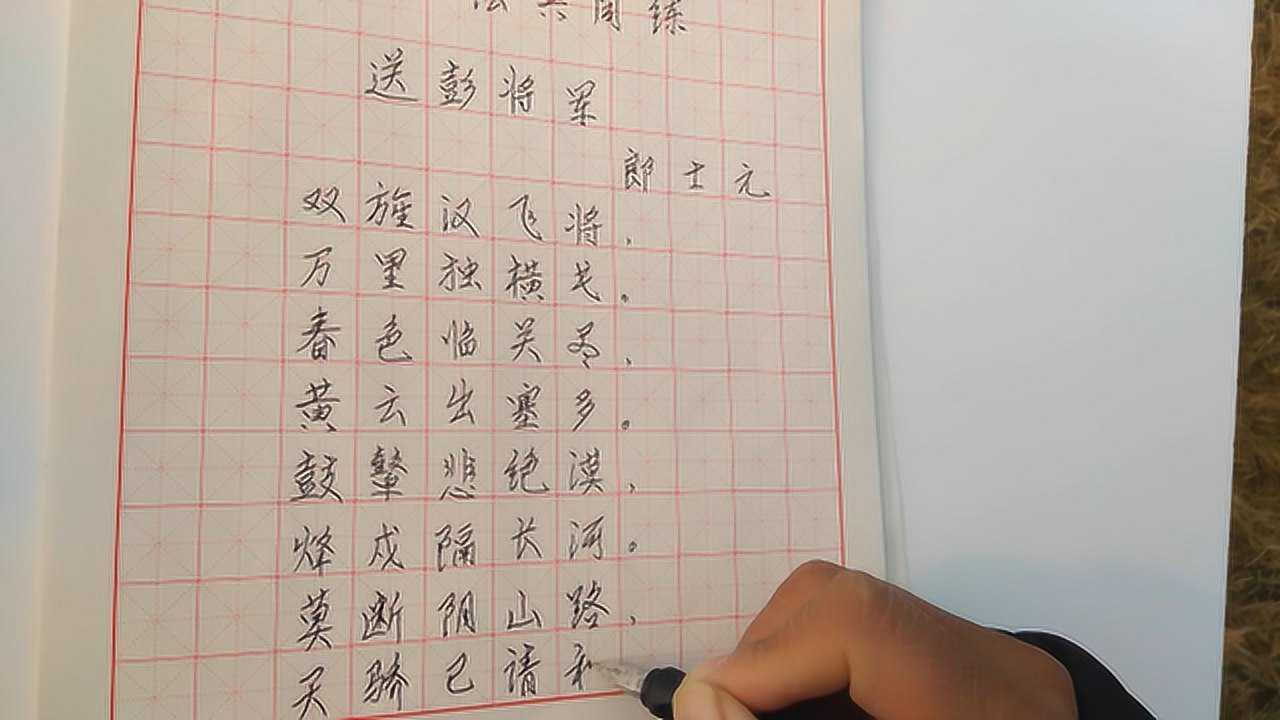 法共同练
送彭将军
郎士元
双旌汉飞将，
万里独横戈。
春色临关尽，
黄云出塞多。
鼓鼙悲绝漠，
烽戍隔长河。
莫断阴山路，
天骄已请和